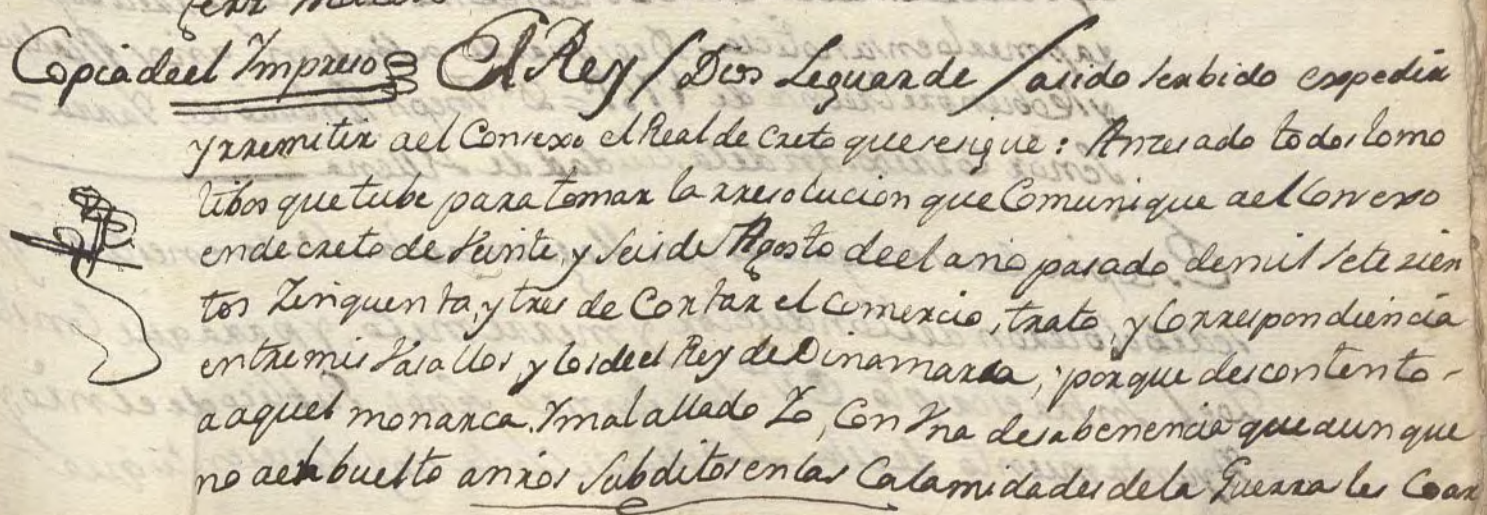 Copia deel Impreso El Rey / Dios Le guarde / a sido serbido expedir
y rremitir ael Consexo el Real de creto que se sigue: An zesado todos lo mo
tibos que tube para tomar la rresolucion que Comunique ael Consexo
en de creto de Veinte, y Seis de Agosto de el año pasado de mil sete zien
tos Zinquenta, y tres de Cortar el Comercio, trato, y Correspondiencia
entre mis Vasallos, y los de el Rey de Dinamarca, porque descontento
a aquel monarca, Y mal allado Yo, Con Vna desabenencia que aun que
no a enbuelto a nros Subditos en las Calamidades de la Guerra les Coar